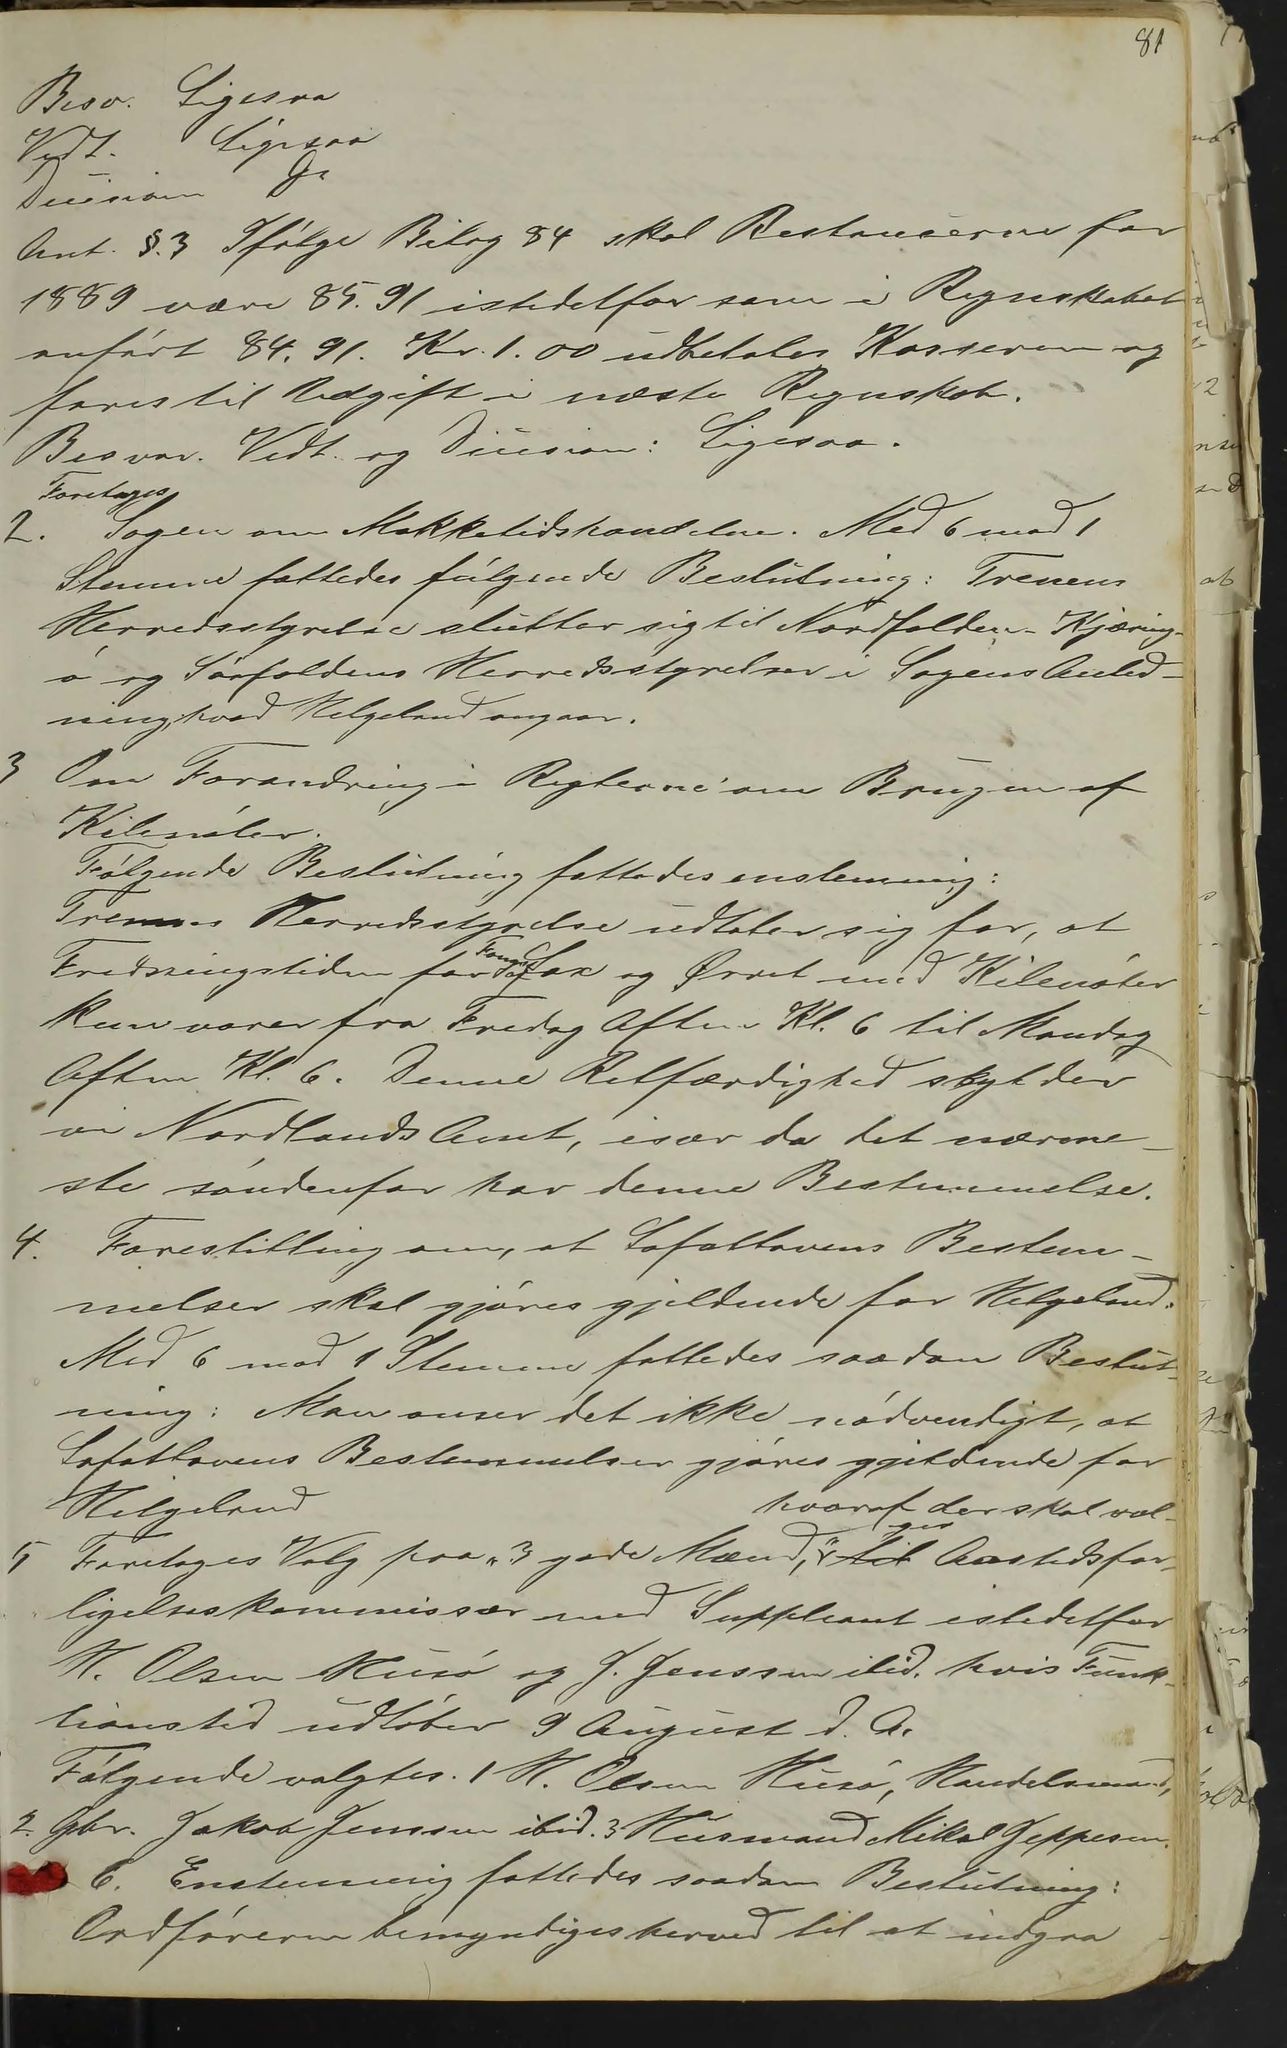 81
Besv. Ligesaa
Vedt. Ligesaa
Decision Do
Ant. §.3 Ifølge Bilag 84 skal Restancerne for
1889 være 85.91 istedetfor som i Regnskabet
anført 84.91. Kr. 1.00 udbetales Kassereren og
føres til Udgift i næste Regnskab.
Besvar. Vedt. og Decision: Ligesaa.
Foretages
2. Sagen om Makketidshandelen. Med 6 mod 1
Stemme fattedes følgende Beslutning: Trenens
Herredsstyrelse slutter sig til Nordfolden-Kjæring-
ø og Sørfoldens Herredsstyrelser i Sagens Anled-
ning, hvad Helgeland angaar.
3 Om Forandring i Reglerne om Brugen af
Kilenøter.
Følgende Beslutning fattedes enstemmig:
Trenens Herredsstyrelse udtaler sig for, at
Fredningstiden for Fangst af Lax og Ørret med Kilenøter
kun varer fra Fredag Aften Kl. 6 til Mandag
Aften Kl. 6. Denne Retfærdighed skylder
vi Nordlands Amt, især da det nærme-
ste søndenfor har denne Bestemmelse.
4. Forestilling om, at Lofotlovens Bestem-
melser skal gjøres gjeldende for Helgeland.
Med 6 mod 1 Stemme fattedes saadan Beslut-
ning: Man anser det ikke nødvendigt, at
Lofotlovens Bestemmelser gjøres gjeldende for
Helgeland
hvoraf der skal væl-
ges
5 Foretages Valg paa "3 gode Mænd," til Aastedsfor-
ligelseskommissær med Suppleant istedetfor
H. Olsen Husø og J. Jenssen ibid. hvis Funk-
tionstid udløber 9 August d. A.
Følgende valgtes. 1 H. Olsen Husø, Handelsmand,
2. Gbr. Jakob Jenssen ibid. 3 Husmand Mikal Jeppesen.
6. Enstemmig fattedes saadan Beslutning:
Ordføreren bemyndiges herved til at indgaa